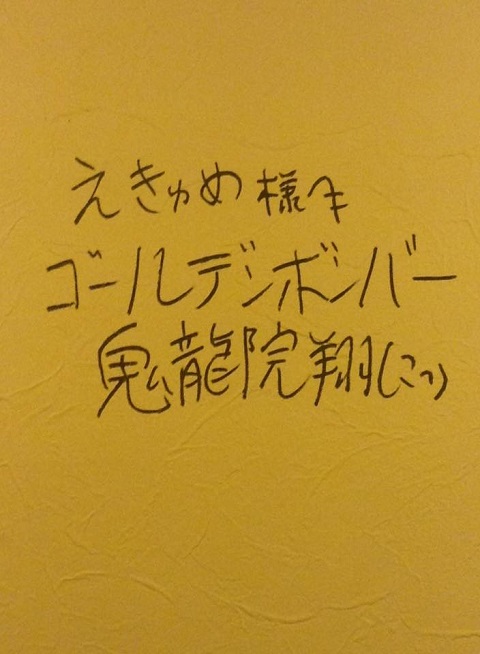 えきゅめ様へ
ゴールデンボンバー
鬼龍院翔(こつ)